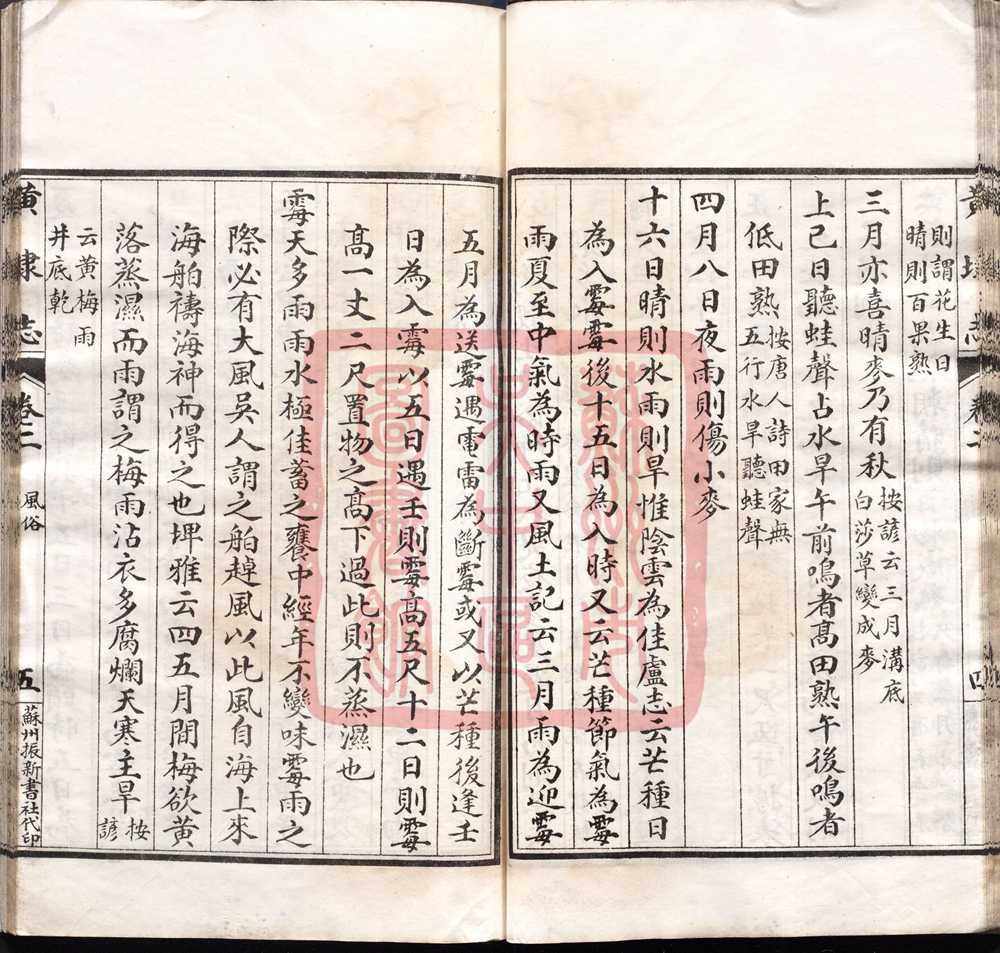 黄埭志 卷二 四
則謂花生日
晴則百果熟
三月亦喜晴麥乃有秋按諺云三月溝底白莎草變成麥
上巳日聽蛙聲占水旱午前鳴者高田熟午後鳴者
低田熟按唐人詩田家無五行水旱聽蛙聲
四月八日夜雨則傷小麥
十六日晴則水雨則旱惟陰雲為佳盧志云芒種日
為入霉霉後十五日為入時又云芒種節氣為霉
雨夏至中氣為時雨又風土記云三月雨為迎霉
五月為送霉遇電雷為斷霉或又以芒種後逢壬
日為入霉以五日遇壬則霉高五尺十二日則霉
高一丈二尺置物之高下過此則不蒸濕也
霉天多雨雨水極佳蓄之甕中經年不變味霉雨之
際必有大風吳人謂之舶趠風以此風自海上來
海舶禱海神而得之也埤雅云四五月間梅欲黄
落蒸濕而雨謂之梅雨沾衣多腐爛天寒主旱按諺
云黄梅雨
井底乾
黄埭志 卷二 風俗 五 蘇州振新書社代印